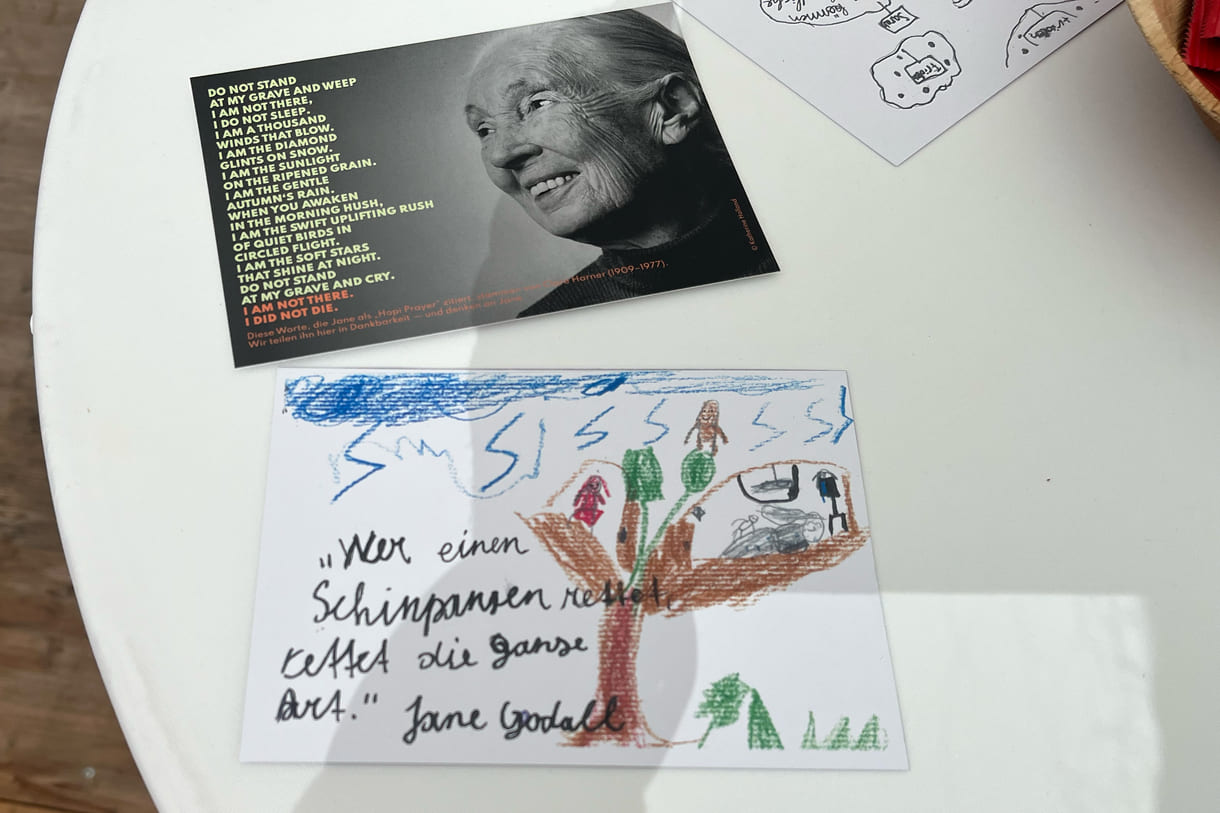 DO NOT STAND
AT MY GRAVE AND WEEP
I AM NOT THERE,
I DO NOT SLEEP.
I AM A THOUSAND
WINDS THAT BLOW.
I AM THE DIAMOND
GLINTS ON SNOW.
I AM THE SUNLIGHT
ON THE RIPENED GRAIN.
I AM THE GENTLE
AUTUMN'S RAIN.
WHEN YOU AWAKEN
IN THE MORNING HUSH,
I AM THE SWIFT UPLIFTING RUSH
OF QUIET BIRDS IN
CIRCLED FLIGHT.
I AM THE SOFT STARS
THAT SHINE AT NIGHT.
DO NOT STAND
AT MY GRAVE AND CRY.
I AM NOT THERE.
I DID NOT DIE.
Diese Worte, die Jane als „Hopi Prayer" zitiert, stammen von Harner (1909–1977).
Wir teilen ihn hier in Dankbarkeit – und denken an Jane.
© Katharine Holland
können
„Wer einen
Schinpansen rettet,
rettet die ganse
Art."
Jane Godall